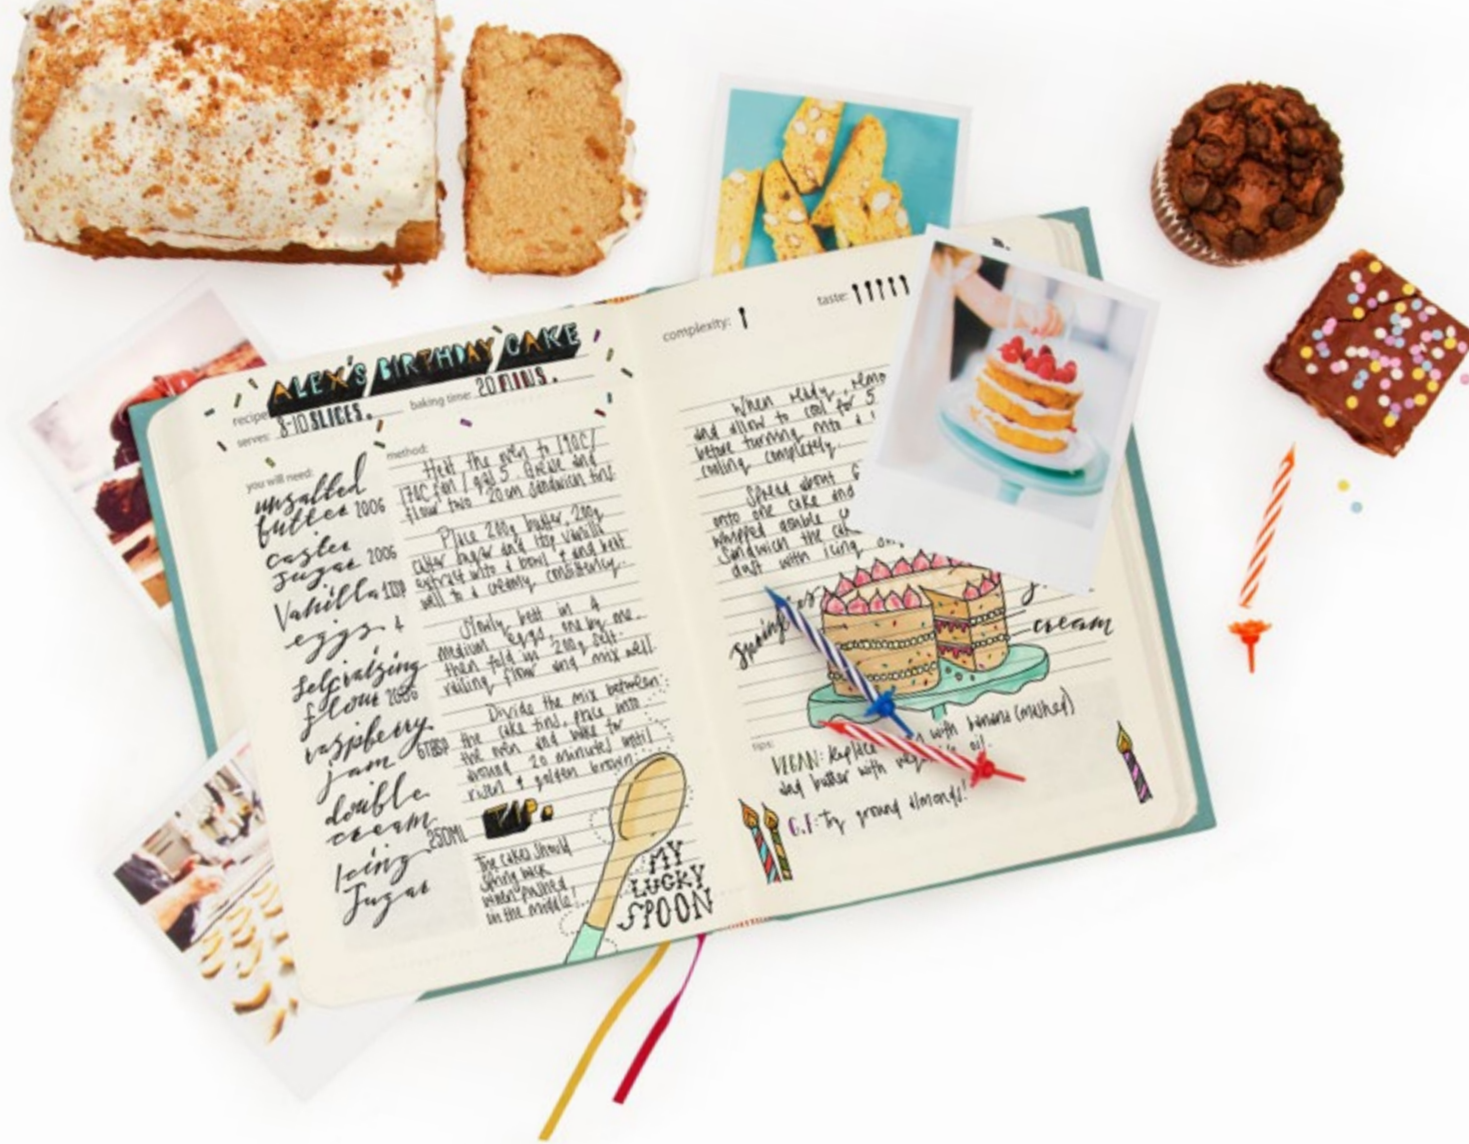 ALEX'S BIRTHDAY CAKE
recipe:
serves: 8-10 SLICES.
baking time: 20 MINS.
you will need:
unsalted
butter 200G
caster
sugar 200G
Vanilla 1TSP
eggs 4
Self raising
flour 200G
raspberry
jam 6TBSP
double
cream 250ML
Icing
Sugar
method:
Heat the oven to 190C/
170C fan / gas 5. Grease and
flour two 20cm sandwich tins.
Place 200g butter, 200g
caster sugar and 1tsp vanilla
extract into a bowl and beat
well to a creamy consistency.
Slowly beat in 4
medium eggs, one by one.
then fold in 200g self-
raising flour and mix well.
Divide the mix between
the cake tins, place into
the oven and bake for
around 20 minutes until
risen & golden brown.
TIP:
the cakes should
spring back
when pushed
in the middle!
MY
LUCKY
SPOON
complexity:
taste:
When ready, remo
and allow to cool for 5
before turning into a
cooling completely.
Spread about
onto one cake and
whipped double
Sandwich the cak
dust with icing
cream
tips:
VEGAN: Replace with banana (mashed)
and butter with oil.
G.F: Try ground almonds!